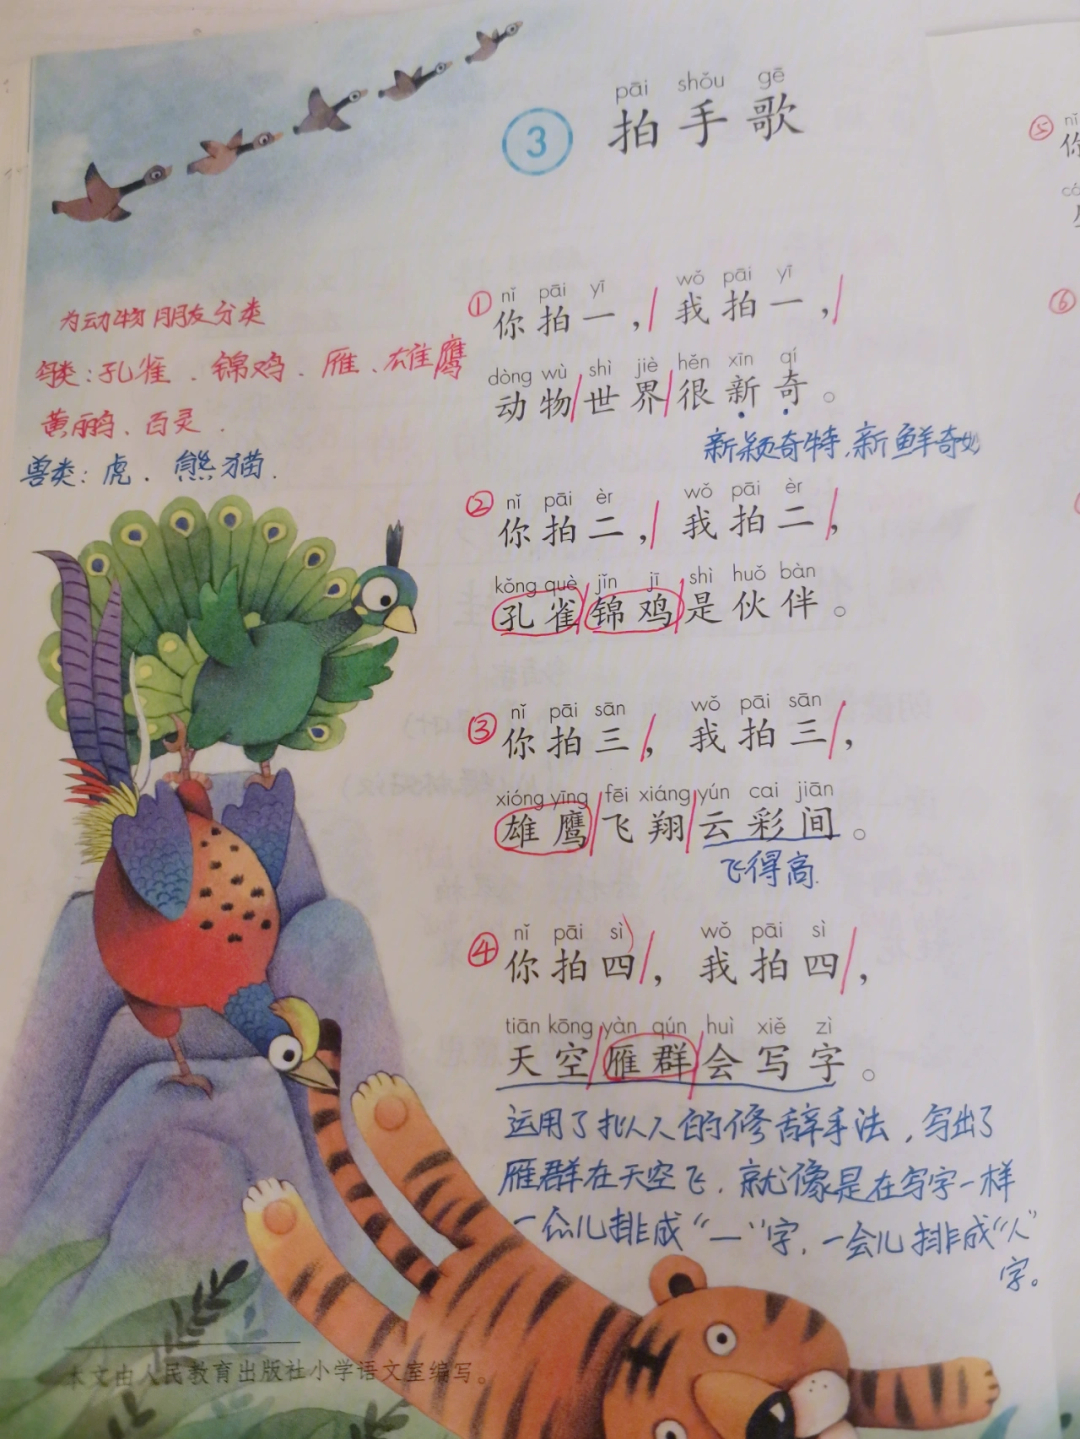 pāi shǒu gē
3 拍手歌
⑤ nǐ
你
⑥
为动物朋友分类
鸟类:孔雀、锦鸡、雁、雄鹰
黄鹂、百灵.
兽类:虎、熊猫.
nǐ pāi yī wǒ pāi yī
① 你拍一,我拍一,
dòng wù shì jiè hěn xīn qí
动物世界很新奇。
新颖奇特,新鲜奇妙
nǐ pāi èr wǒ pāi èr
② 你拍二,我拍二,
kǒng què jǐn jī shì huǒ bàn
孔雀锦鸡是伙伴。
nǐ pāi sān wǒ pāi sān
③ 你拍三,我拍三,
xióng yīng fēi xiáng yún cai jiān
雄鹰飞翔云彩间。
飞得高.
nǐ pāi sì wǒ pāi sì
④ 你拍四,我拍四,
tiān kōng yàn qún huì xiě zì
天空雁群会写字。
运用了拟人的修辞手法,写出了
雁群在天空飞,就像是在写字一样
一会儿排成“一”字,一会儿排成“人”
字。
本文由人民教育出版社小学语文室编写。